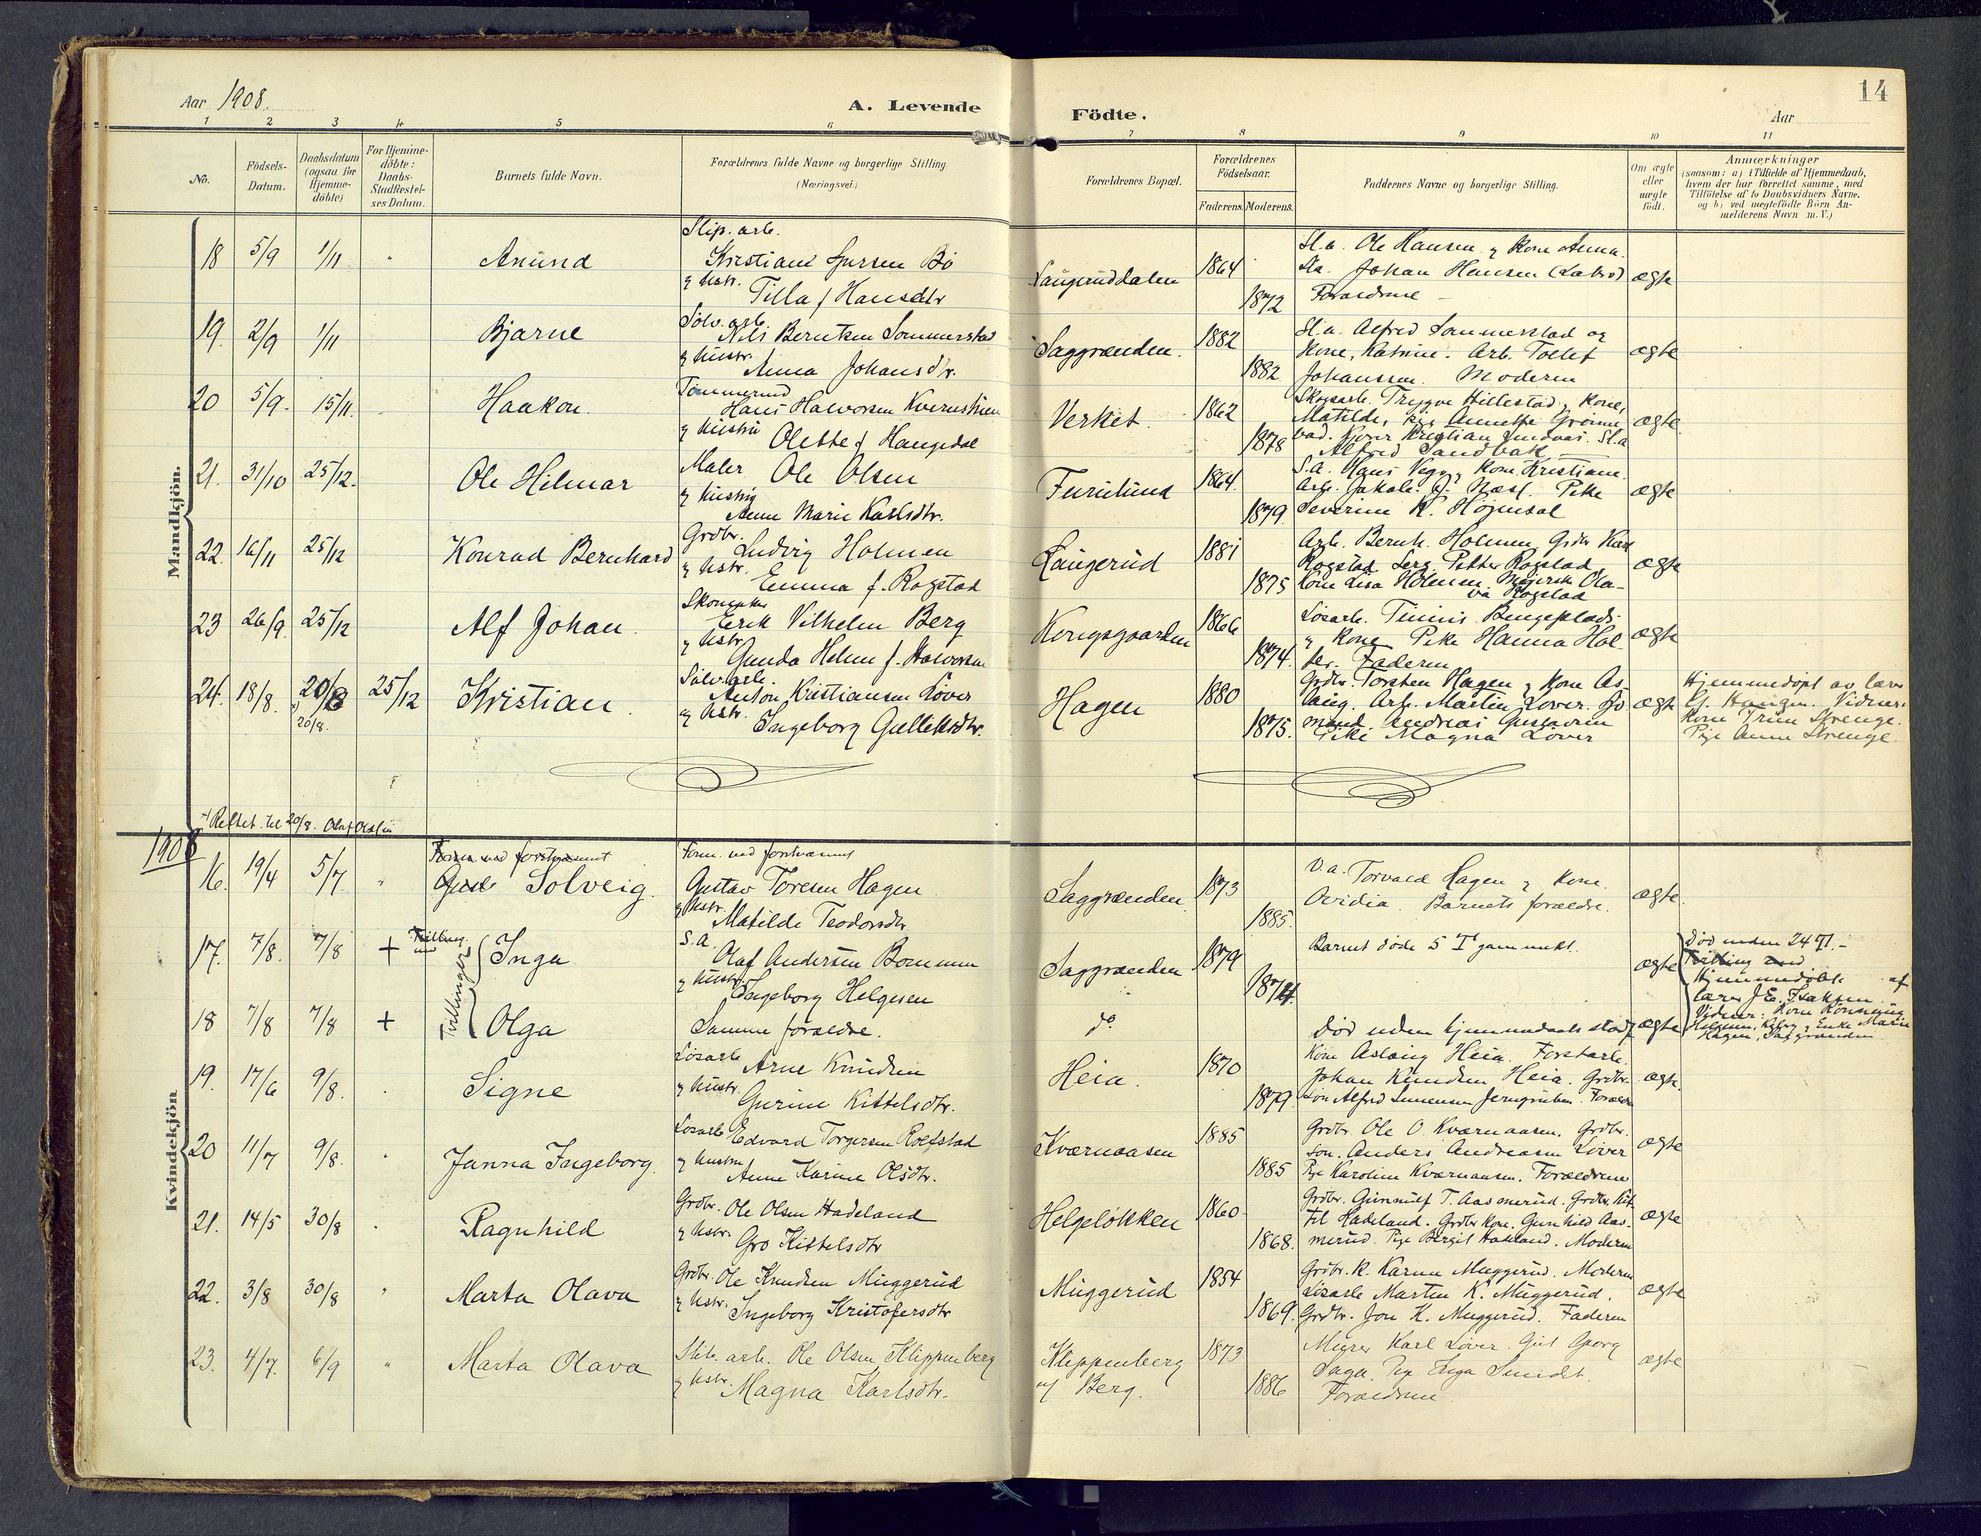 Aar 1908.
A. Levende Födte.
Aar
14
1 2 3 4 5 6 7 8 9 10 11
No.
Födsels-
Datum.
Daabsdatum
(ogsaa for
Hjemme-
döbte)
For Hjemme-
döbte:
Daabs-
Stadfestel-
ses Datum.
Barnets fulde Navn.
Forældrenes fulde Navne og borgerlige Stilling
(Næringsvei.)
Forældrenes Bopæl.
Forældrenes
Födselsaar.
Faderens.
Moderens.
Faddernes Navne og borgerlige Stilling.
Om ægte
eller
uægte
födt.
Anmærkninger
(saasom: a) i Tilfælde af Hjemmedaab,
hvem der har forrettet samme, med
Tilföielse af to Daabsvidners Navne.
og b) ved uegtefödte Börn An-
melderens Navn m. V.)
Mandkjön.
18 5/9 1/11 " Anund
Slip. arb.
Kristian Bö
& Hstr.
Tilla f. Hansdtr
Laugeruddalen 1864 1872
Sl.a. Ole Hansen & Kone Anna.
Johan Hansen (Labro)
Forældrene
ægte
19. 2/9 1/11 Bjarne
Sölv. arb.
Nils Berntsen Sommerstad
& Hustr.
Anna Johansdr.
Saggrænden. 1882 1882
Sl.a. Alfred Sommerstad og
Kone, Katrine. Arb. Tollef
Johanssen. Moderen
ægte
20 5/9. 15/11. Haakon.
Hans Halvorsen
& Hustru
Olette f. Haugedal
Verket. 1862 1878
Skogsarb. Trygve Hillestad & Kone,
Matilde, Pige Annette
Kristian Sl.a
Alfred Sandbak
ægte.
21. 31/10 25/12. Ole Hilmar
Maler Ole Olsen
& Hustru
Anne Marie Karlsdtr.
Furulund 1864. 1879.
S.a. Hans & Kone Kristiane.
Arb. Jakob Næss. Pike
Severine K.
ægte
22. 16/11 25/12 Konrad Bernhard
Grdbr. Ludvig Holmen
& Hstr.
Emma f. Rogstad
Laugerud 1881 1875
Arb. Bernh. Holmen, Grdbr
Rogstad Serg. Petter Rogstad,
Kone Lisa Holmen. Meierske Ola-
va Rogstad
ægte
23 26/9. 25/12 Alf Johan.
Skomaker
Erik Vilhelm Berg
& Hstr.
Gunda Helene f. Halvorsen
Kongsgaarden 1866 1874.
Lösarb. Tinius Bengeplads
& Kone Pike Hanna Hol
ter. Faderen
ægte
24. 18/8. 20/8 25/12 Kristian.
20/8.
Sölv. arb.
Anton Kristiansen Löver
& Hstr.
Ingeborg Gulleksdtr.
Hagen 1880 1875.
Grdbr. Torsten Hagen & Kone As-
laug. Arb. Martin Löver.
Andreas Gustavsen
Pike Magna Löver
ægte
Hjemmedöpt av lærer
Haugen. Vidner:
Kone Trine Strenge.
Pige Anna Strenge.
Rettet til 20/8. Olaf Olafsen
1908
Kvindekjön
16. 19/4 5/7. " Solveig.
Form. ved forstvæsenet
Gustav Toresen Hagen.
& Hstr.
Matilde Teodorsdtr.
Saggrænden. 1873 1885.
V.a. Torvald Hagen & Kone.
Ovidia. Barnets forældre.
ægte.
17. 7/8. 7/8 + Tvillinger Inga
S.a.
Olaf Andersen Bommen
& Hustr.
Ingeborg Helgesen
Saggrænden 1879 1874.
Barnet döde 5 T gammelt.
ægte
Död inden 24 T.
Hjemmedöbt af
lærer J. E. Isaksen
Vidner: Kone Rönnaug
Helgesen, & Enke Marie
Hagen, Saggrænden
18 7/8 7/8 + Olga
Samme forældre.
do
Död uden hjemmedaabs stadf.
ægte
19. 17/6 9/8. Signe
Lösarb
Arne Knudsen
& Hustr.
Gurine Kittelsdtr.
Heia. 1870 1879
Kone Aslaug Heia. Forstarb.
Johan Knudsen Heia. Grdbr.
sön Alfred Simensen Jerngruben. Forældr
ægte.
20 11/7 9/8. " Janna Ingeborg.
Lösarb Edvard Torgersen Rolfstad
& Hustru
Anne Karine Olsdtr.
Kværnaasen 1885 1885
Grdbr Ole O. Kværnaasen. Grdbr.
sön. Anders Andreasen Löver
Pige Karoline Kværnaasen. Forældrene
ægte
21. 14/5 30/8 Ragnhild
Grdbr. Ole Olsen Hadeland
& Hstr.
Gro Kittelsdtr
Helgelökken 1860 1868.
Grdbr. Gunnulf T. Aasmerud. Grdbr. Kit-
til Hadeland. Grdbr kone. Gunhild Aas-
merud. Pige Bergit Hadeland. Moderen
ægte
22. 3/8 30/8 " Marta Olava
Grdbr. Ole Knudsen Muggerud
& Hstr. Ingeborg Kristofersdtr
Muggerud 1854 1869.
Grdbr. K. Karine Muggerud. Moderen
Lösarb Martin K. Muggerud.
Grdbr. Jon K. Muggerud. Faderen
ægte
23. 4/7. 6/9 " Marta Olava
Slib. arb. Ole Olsen Klippenberg
& Hstr.
Magna Karlsdtr.
Klippenberg
u/ Berg. 1873 1886
Murer Karl Löver. Gut Georg
Saga. Pige Inga
Forældrene
ægte